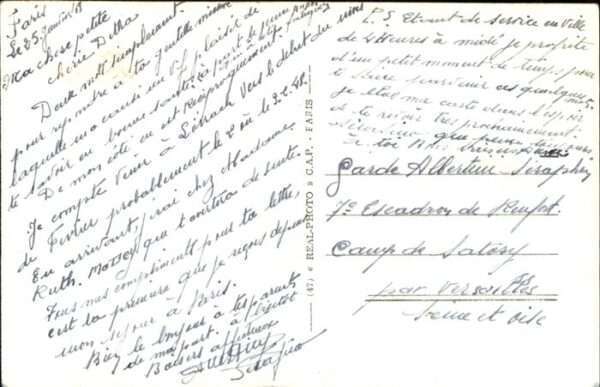 Paris
Le 25 Janvier 48
Ma chère petite
chérie Detha
Deux mots simplement
pour répondre à ta gentille missive
laquelle m'a causé un vif plaisir de
te savoir en bonne santé
De mon côté en est réciproquement
Je compte venir à vers le début du mois
de Février probablement le 2 ou le 3.2.48.
En arrivant, j'irai chez Madame
Ruth. qui t'avertira de suite.
Tous mes compliments pour ta lettre,
c'est la première que je reçois depuis
mon séjour à Paris.
Bien le bonjour à tes parents
de ma part. à bientôt
Baisers affectueux
Séraphin
(47) REAL-PHOTO C.A.P. - PARIS
P.S. Etant de service en Ville
de 4 Heures à midi je profite
d'un petit moment de temps pour
te faire parvenir ces quelques mots.
je met ma carte dans l'espoir
de te revoir très prochainement.
que pour toujours
à toi
Garde Albertini Séraphin
7e Escadron de Renfort.
Camp de Satory
par Versailles
Seine et Oise